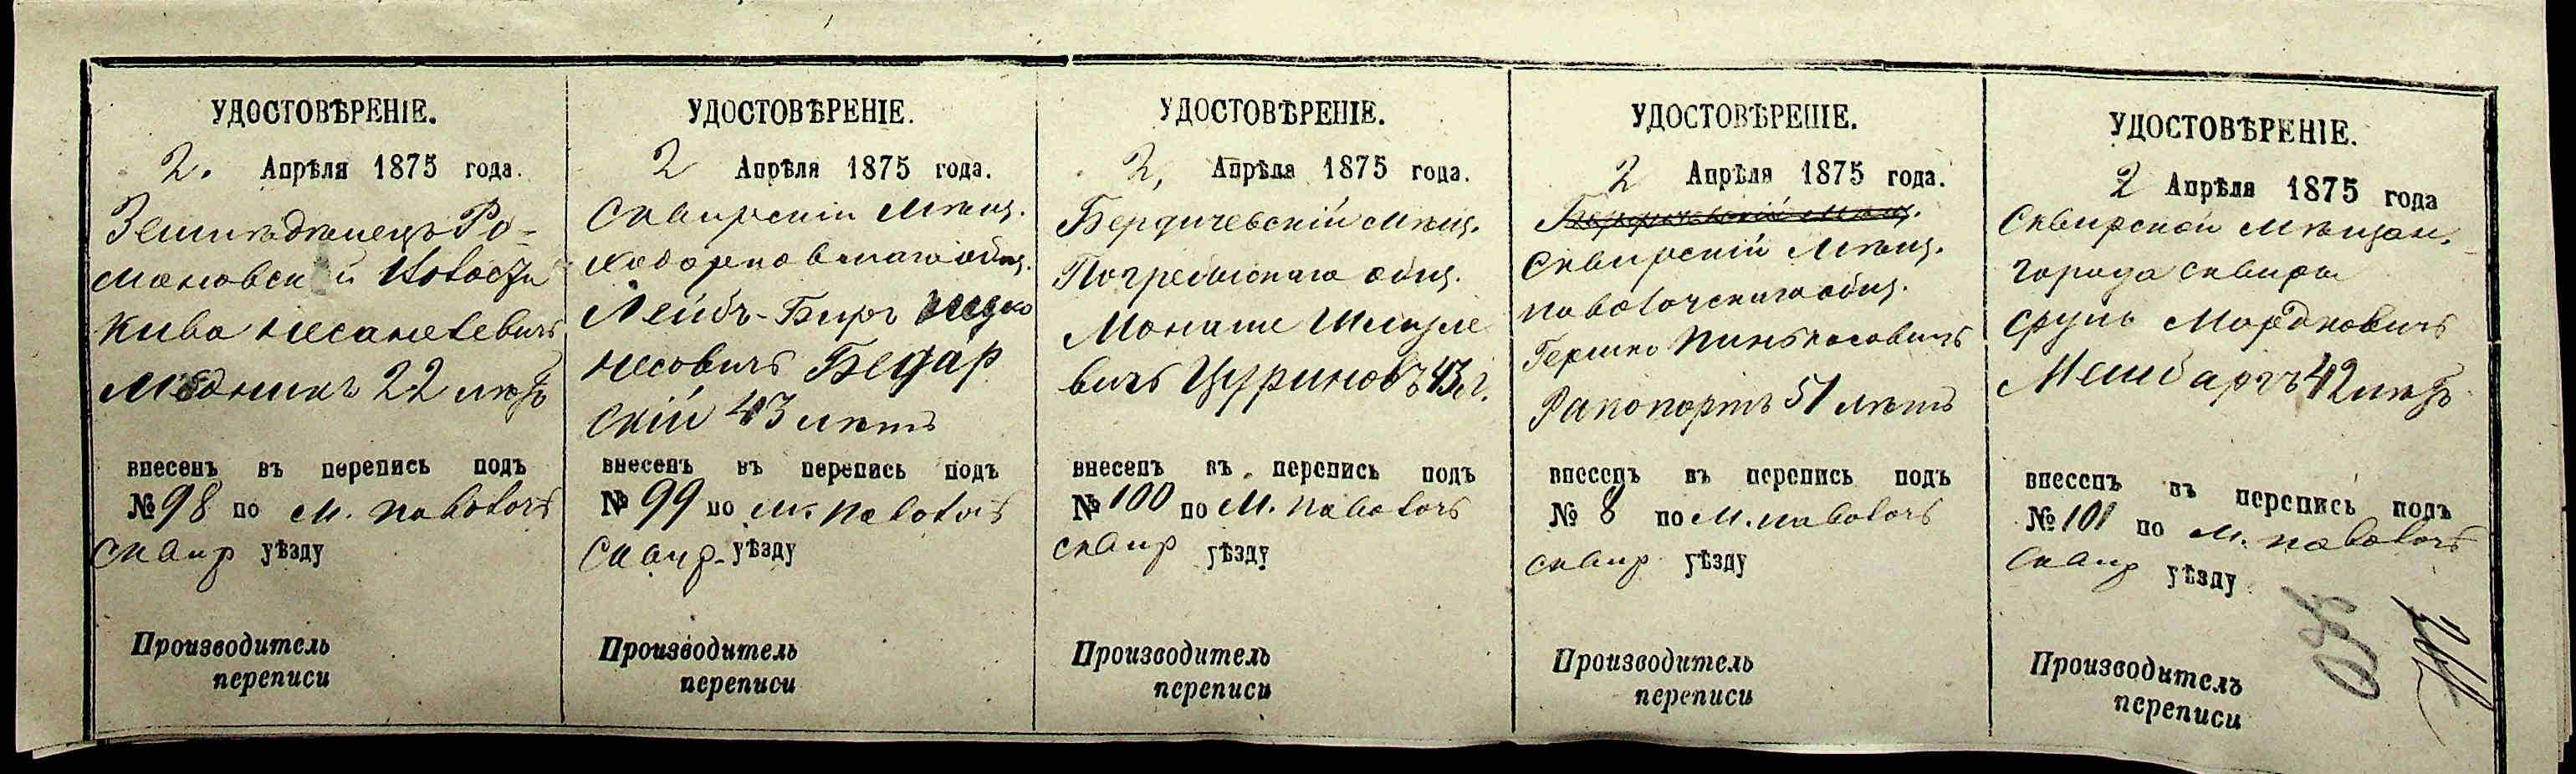 УДОСТОВѢРЕНІЕ.
2. Апрѣля 1875 года.
Земледѣлецъ Ро-
мановской Волости
Кива Несаневевичъ
Медникъ 22 лѣтъ
внесенъ въ перепись подъ
№ 98 по м. паволочѣ
сквир уѣзду
Производитель
переписи
УДОСТОВѢРЕНІЕ.
2 Апрѣля 1875 года.
Сквирскій Мѣщ.
ходорковскаго общ.
Лейбъ-Беръ
несовичъ
скій 43 лѣтъ
внесенъ въ перепись подъ
№ 99 по м. паволочѣ
Сквир. уѣзду
Производитель
переписи
УДОСТОВѢРЕНІЕ.
2, Апрѣля 1875 года.
Бердичевскій мѣщ.
Погребыскаго общ.
Монаше Шмуле
вичъ Цуриновъ 43 л.
внесенъ въ перепись подъ
№ 100 по м. паволочѣ
сквир уѣзду
Производитель
переписи
УДОСТОВѢРЕНІЕ.
2 Апрѣля 1875 года.
Бердичевскій мѣщ.
Сквирскій Мѣщ.
паволочскаго общ.
Гершко Пинькасовичъ
Рапопортъ 51 лѣтъ
внесенъ въ перепись подъ
№ 8 по м. паволочѣ
сквир уѣзду
Производитель
переписи
УДОСТОВѢРЕНІЕ.
2 Апрѣля 1875 года
Сквирской мѣщан.
города сквиры
Сруль Мордковичъ
42 лѣтъ
внесенъ въ перепись подъ
№ 101 по м. паволочѣ
сквир уѣзду
Производитель
переписи